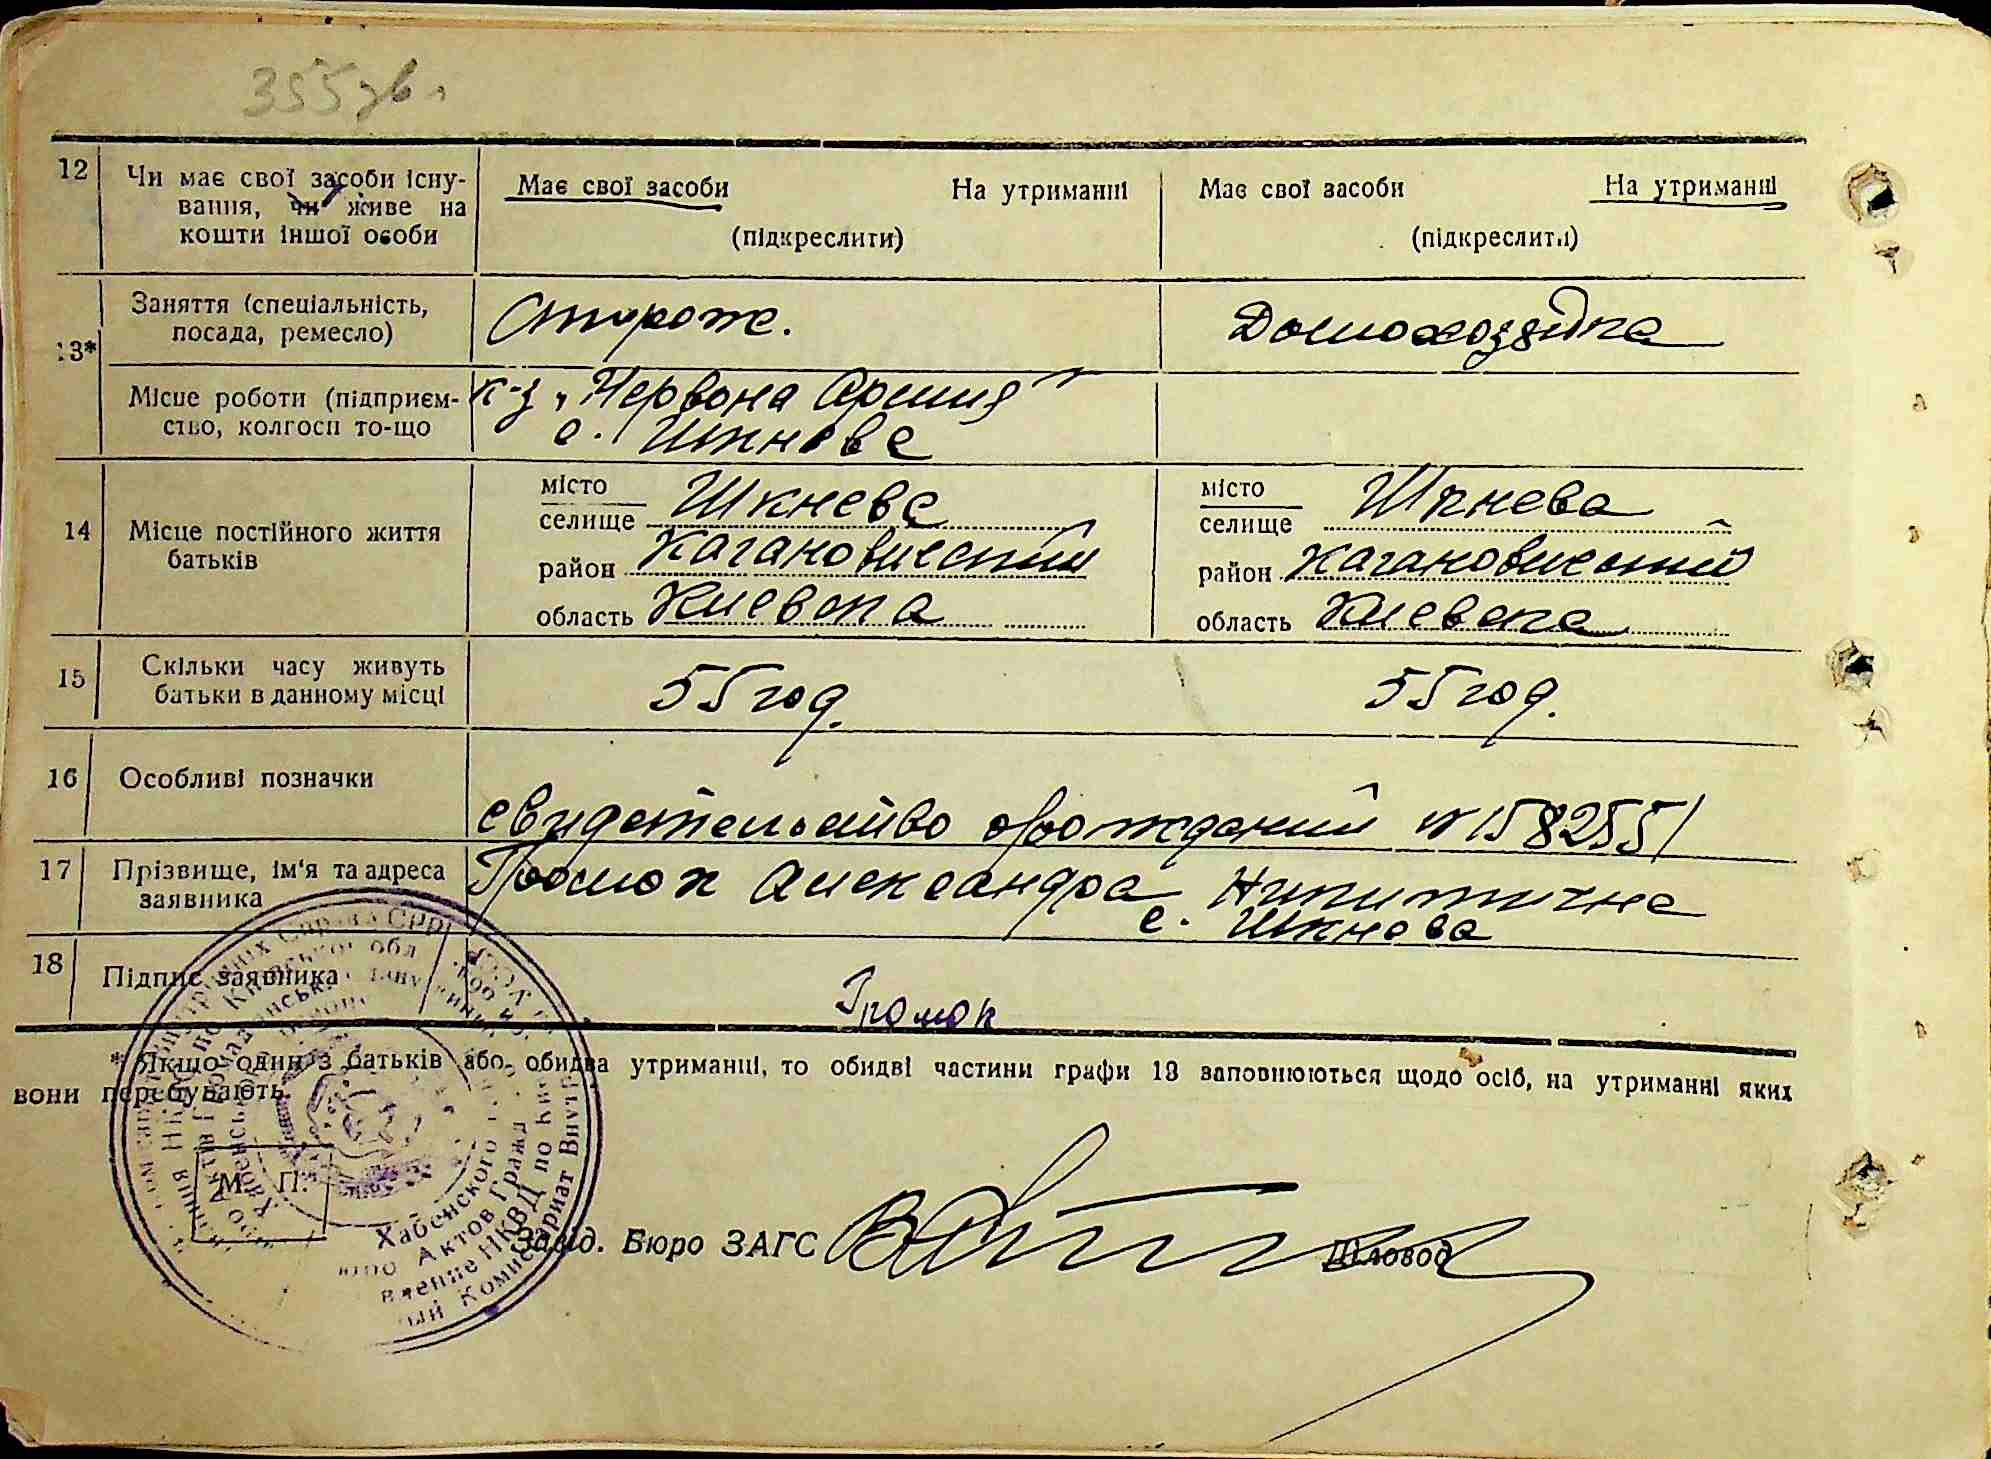 355 зв.
12 Чи має свої засоби існу-
вання, чи живе на
кошти іншої особи
Має свої засоби На утриманні
(підкреслити)
Має свої засоби На утриманні
(підкреслити)
13*
Заняття (спеціальність,
посада, ремесло)
Сторож.
Домохозяйка
Місце роботи (підприєм-
ство, колгосп то-що
к-з „Червона Армия"
с. Шкнева
14 Місце постійного життя
батьків
місто
селище Шкнева
район Кагановический
область Киевска
місто
селище Шкнева
район Кагановический
область Киевска
15 Скільки часу живуть
батьки в данному місці
55 год.
55 год.
16 Особливі позначки
свидетельство о рождении № 158255
17 Прізвище, ім'я та адреса
заявника
Громок Александра Никитична
с. Шкнева
18 Підпис заявника
Громок
* Якщо один з батьків або обидва утриманні, то обидві частини графи 13 заповнюються щодо осіб, на утриманні яких
вони перебувають.
М. П.
Завід. Бюро ЗАГС
Діловод
Хабенского
Актов Гражд
НКВД по Ки
Комиссариат Внут